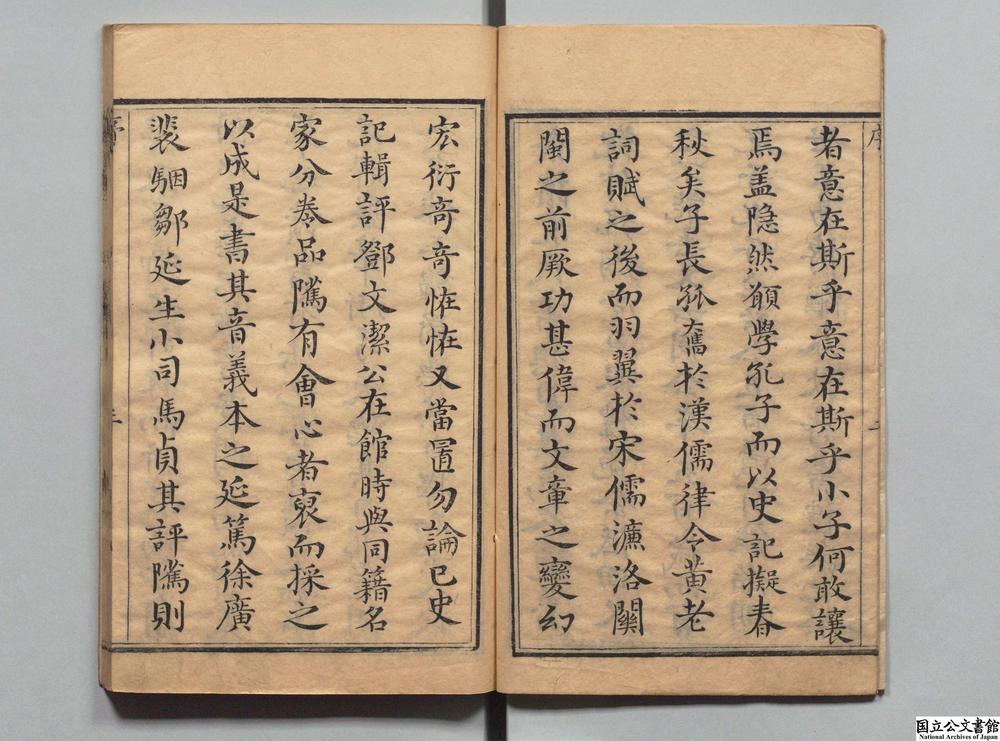 者意在斯乎意在斯乎小子何敢讓
焉盖隐然願學孔子而以史記擬春
秋矣子長孤奮於漢儒律令黄老
詞賦之後而羽翼於宋儒濂洛関
閩之前厥功甚偉而文章之變幻
宏衍奇奇恠恠又當置勿論已史
記輯評鄧文潔公在館時與同籍名
家分卷品隲有會心者裒而採之
以成是書其音義本之延篤徐廣
裴駰鄒延生小司馬貞其評隲則
国立公文書館
National Archives of Japan